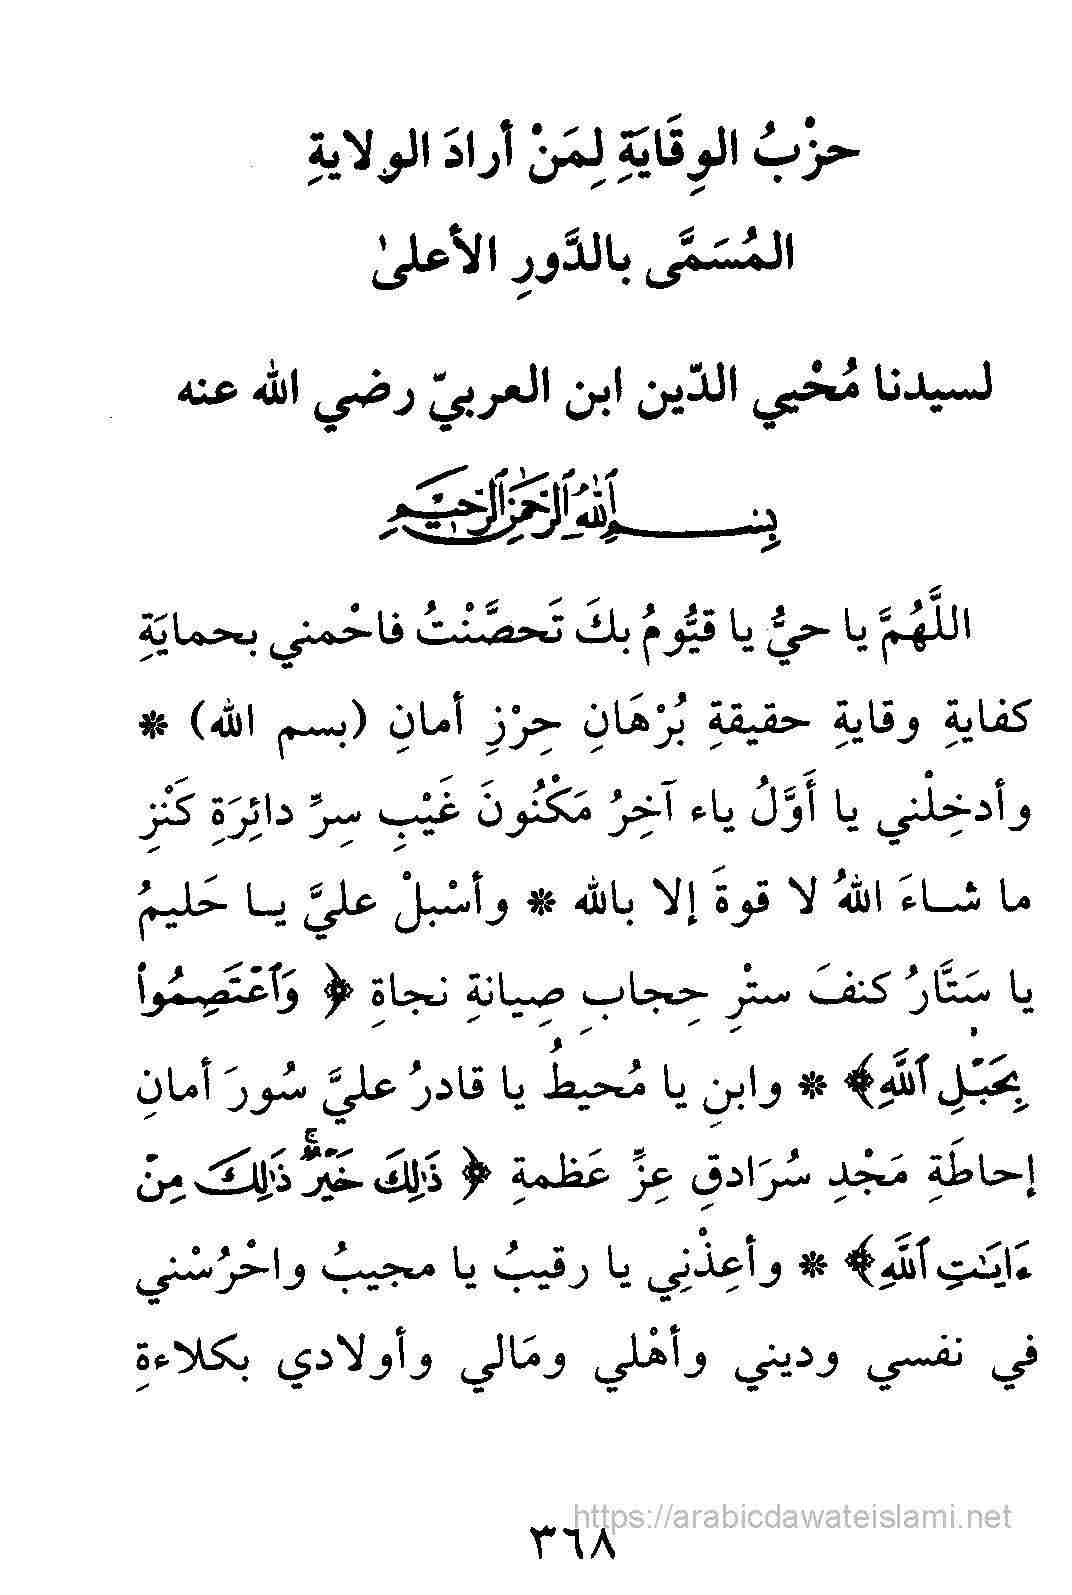 حزْبُ الوِقَايَةِ لِمَنْ أرادَ الولايةِ
المُسَمَّى بالدَّورِ الأعلىٰ
لسيدنا مُحْيي الدّين ابن العربيّ رضي الله عنه
بِسْمِ ٱللَّهِ ٱلرَّحْمَٰنِ ٱلرَّحِيمِ
اللَّهُمَّ يا حيُّ يا قيُّومُ بكَ تَحصَّنْتُ فاحْمني بحمايَةِ
كفايةِ وقايةِ حقيقةِ بُرْهَانِ حِرْزِ أمانِ (بسم الله) *
وأدخِلْني يا أَوَّلُ ياء آخِرُ مَكْنُونَ غَيْبِ سِرِّ دائِرَةِ كَنْزِ
ما شاءَ اللهُ لا قوةَ إلا بالله * وأسْبلْ عليَّ يا حَليمُ
يا سَتَّارُ كنفَ ستْرِ حِجابِ صِيانةِ نجاةِ ﴿ وَٱعۡتَصِمُوا۟
بِحَبۡلِ ٱللَّهِ﴾ * وابنِ يا مُحيطُ يا قادرُ عليَّ سُورَ أمانِ
إحاطَةِ مَجْدِ سُرَادقِ عِزِّ عَظمةِ ﴿ ذَٰلِكَ خَيۡرٌۚ ذَٰلِكَ مِنۡ
ءَايَٰتِ ٱللَّهِ﴾ * وأعِذْنِي يا رقيبُ يا مجيبُ واحْرُسْني
في نفسي وديني وأهْلي ومَالي وأولادي بكلاءةِ
https://arabicdawateislami.net
٣٦٨